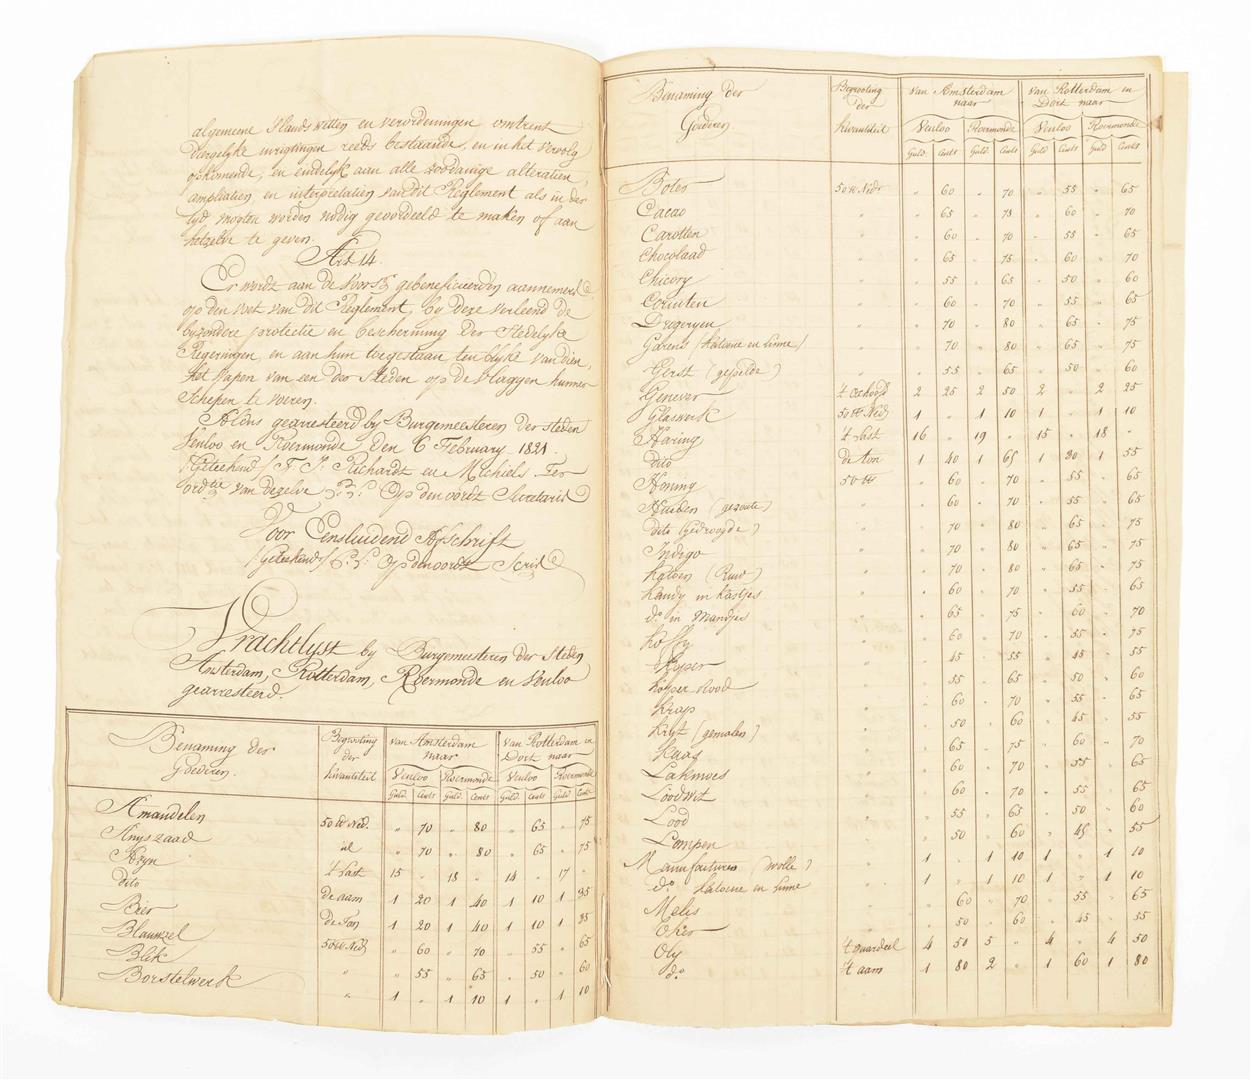 algemeene Landswetten en verordeningen omtrent
dergelyke inrigtingen reeds bestaande, en in het vervolg
opkomende, en eindelyk aan alle zoodanige alteratien,
ampliatien en interpretatien van dit Reglement als in der
tyd mogten worden nodig geoordeeld te maken of aan
hetzelve te geven.
Art 14
Er wordt aan de voorsz gebeneficieerden aannemers
op den voet van dit Reglement, by deze verleend de
byzondere protectie en bescherming der Stedelyke
Regeringen, en aan hun toegestaan ten blyke van dien,
het wapen van een der Steden op de vlaggen hunner
Schepen te voeren.
Aldus gearresteerd by Burgemeesteren der steden
Venloo en Roermonde, den 6 February 1821.
(Geteekend) F. J. Richardt en Michiels Ter
ordtie van dezelve Op den oordt Secretaris
Voor Eensluidend Afschrift
(Geteekend) Op den oordt
Vrachtlyst by Burgemeesteren der Steden
Amsterdam, Rotterdam, Roermonde en Venloo
gearresteerd.
Benaming der Goederen. Begrooting der kwantiteit van Amsterdam naar van Rotterdam en Dort naar
Venloo Roermonde Venloo Roermonde
Guld. Cents Guld. Cents Guld. Cents Guld. Cents
Amandelen 50 ℔ Ned. " 70 " 80 " 65 " 75
Anyszaad id " 70 " 80 " 65 " 75
Azyn 't Last 15 " 18 " 14 " 17 "
dito de aam 1 20 1 40 1 10 1 35
Bier de Ton 1 20 1 40 1 10 1 35
Blauwzel 50 ℔ Ned " 60 " 70 " 55 " 65
Blik " " 55 " 65 " 50 " 60
Borstelwerk " 1 " 1 10 1 " 1 10
Benaming der Goederen. Begrooting der kwantiteit van Amsterdam naar van Rotterdam en Dort naar
Venloo Roermonde Venloo Roermonde
Guld. Cents Guld. Cents Guld. Cents Guld. Cents
Boter 50 ℔ Nedr " 60 " 70 " 55 " 65
Cacao " " 65 " 75 " 60 " 70
Carotten " " 60 " 70 " 55 " 65
Chocolaad " " 65 " 75 " 60 " 70
Chicory " " 55 " 65 " 50 " 60
Corinten " " 60 " 70 " 55 " 65
Drogeryen " " 70 " 80 " 65 " 75
Garens (katoene en linne) " " 70 " 80 " 65 " 75
Gerst (gepelde) " " 55 " 65 " 50 " 60
Genever 't Oxhoofd 2 25 2 50 2 " 2 25
Glaswerk 50 ℔ Ned 1 " 1 10 1 " 1 10
Haring 't Last 16 " 19 " 15 " 18 "
dito de ton 1 40 1 65 1 30 1 55
Honing 50 ℔ " 60 " 70 " 55 " 65
Huiden (gezoute) " " 60 " 70 " 55 " 65
dito (gedroogde) " " 70 " 80 " 65 " 75
Indigo " " 70 " 80 " 65 " 75
Katoen (Ruw) " " 70 " 80 " 65 " 75
Kandy in kastjes " " 60 " 70 " 55 " 65
do in Mandjes " " 65 " 75 " 60 " 70
Koffy " " 60 " 70 " 55 " 75
Kyper " " 45 " 55 " 45 " 55
Koper Rood " " 55 " 65 " 50 " 60
Krap " " 60 " 70 " 55 " 65
Kryt (gemalen) " " 50 " 60 " 45 " 55
Kaas " " 65 " 75 " 60 " 70
Lakmoes " " 60 " 70 " 55 " 65
Loodwit " " 60 " 70 " 55 " 65
Lood " " 55 " 65 " 50 " 60
Lompen " " 50 " 60 " 45 " 55
Manufacturen (wolle) " 1 " 1 10 1 " 1 10
do katoene en linne " 1 " 1 10 1 " 1 10
Melis " " 60 " 70 " 55 " 65
Oker " " 50 " 60 " 45 " 55
Oly 't quardeel 4 50 5 " 4 " 4 50
do 't aam 1 80 2 " 1 60 1 80